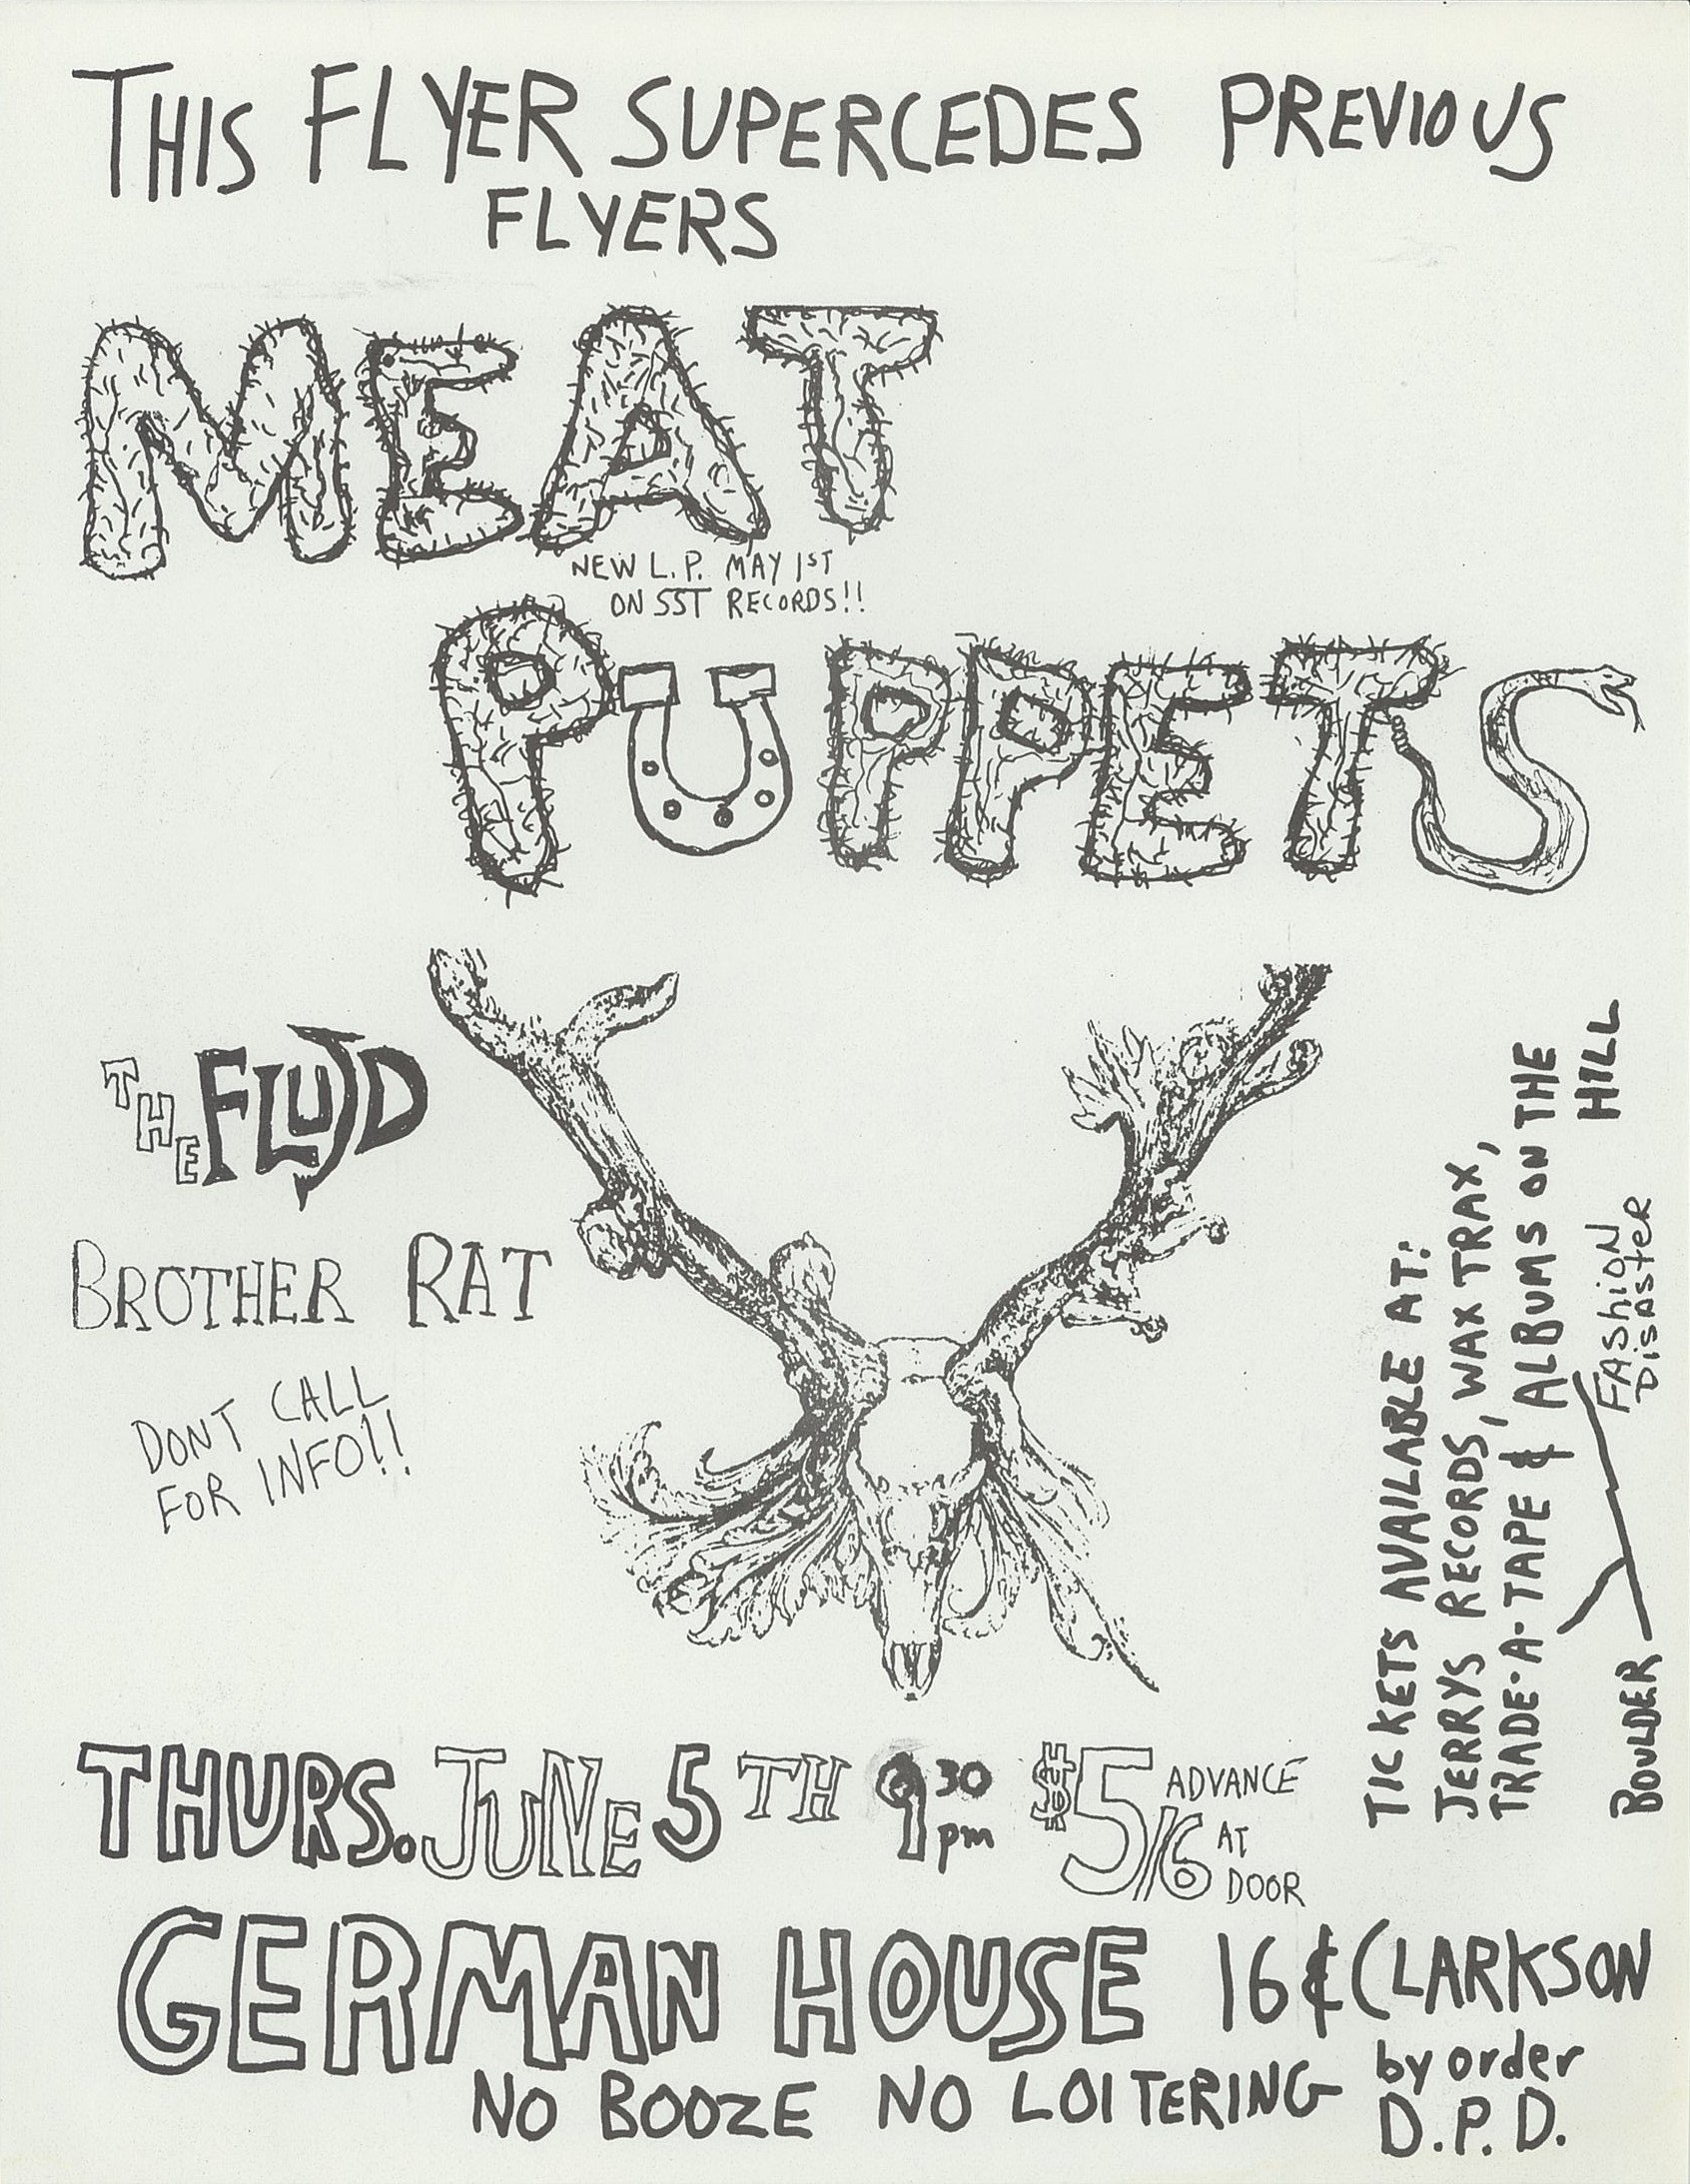 THIS FLYER SUPERCEDES PREVIOUS
FLYERS
MEAT
NEW L.P. MAY 1ST
ON SST RECORDS!!
PUPPETS
THE FLUID
BROTHER RAT
DONT CALL
FOR INFO!!
TICKETS AVAILABLE AT:
JERRYS RECORDS, WAX TRAX,
TRADE-A-TAPE & ALBUMS ON THE
HILL
FAShiON
DisASteR
BOULDER
THURS. JUNE 5TH 9 30 pm $5/6 ADVANCE
AT
DOOR
GERMAN HOUSE 16 & CLARKSON
NO BOOZE NO LOITERING by order
D.P.D.